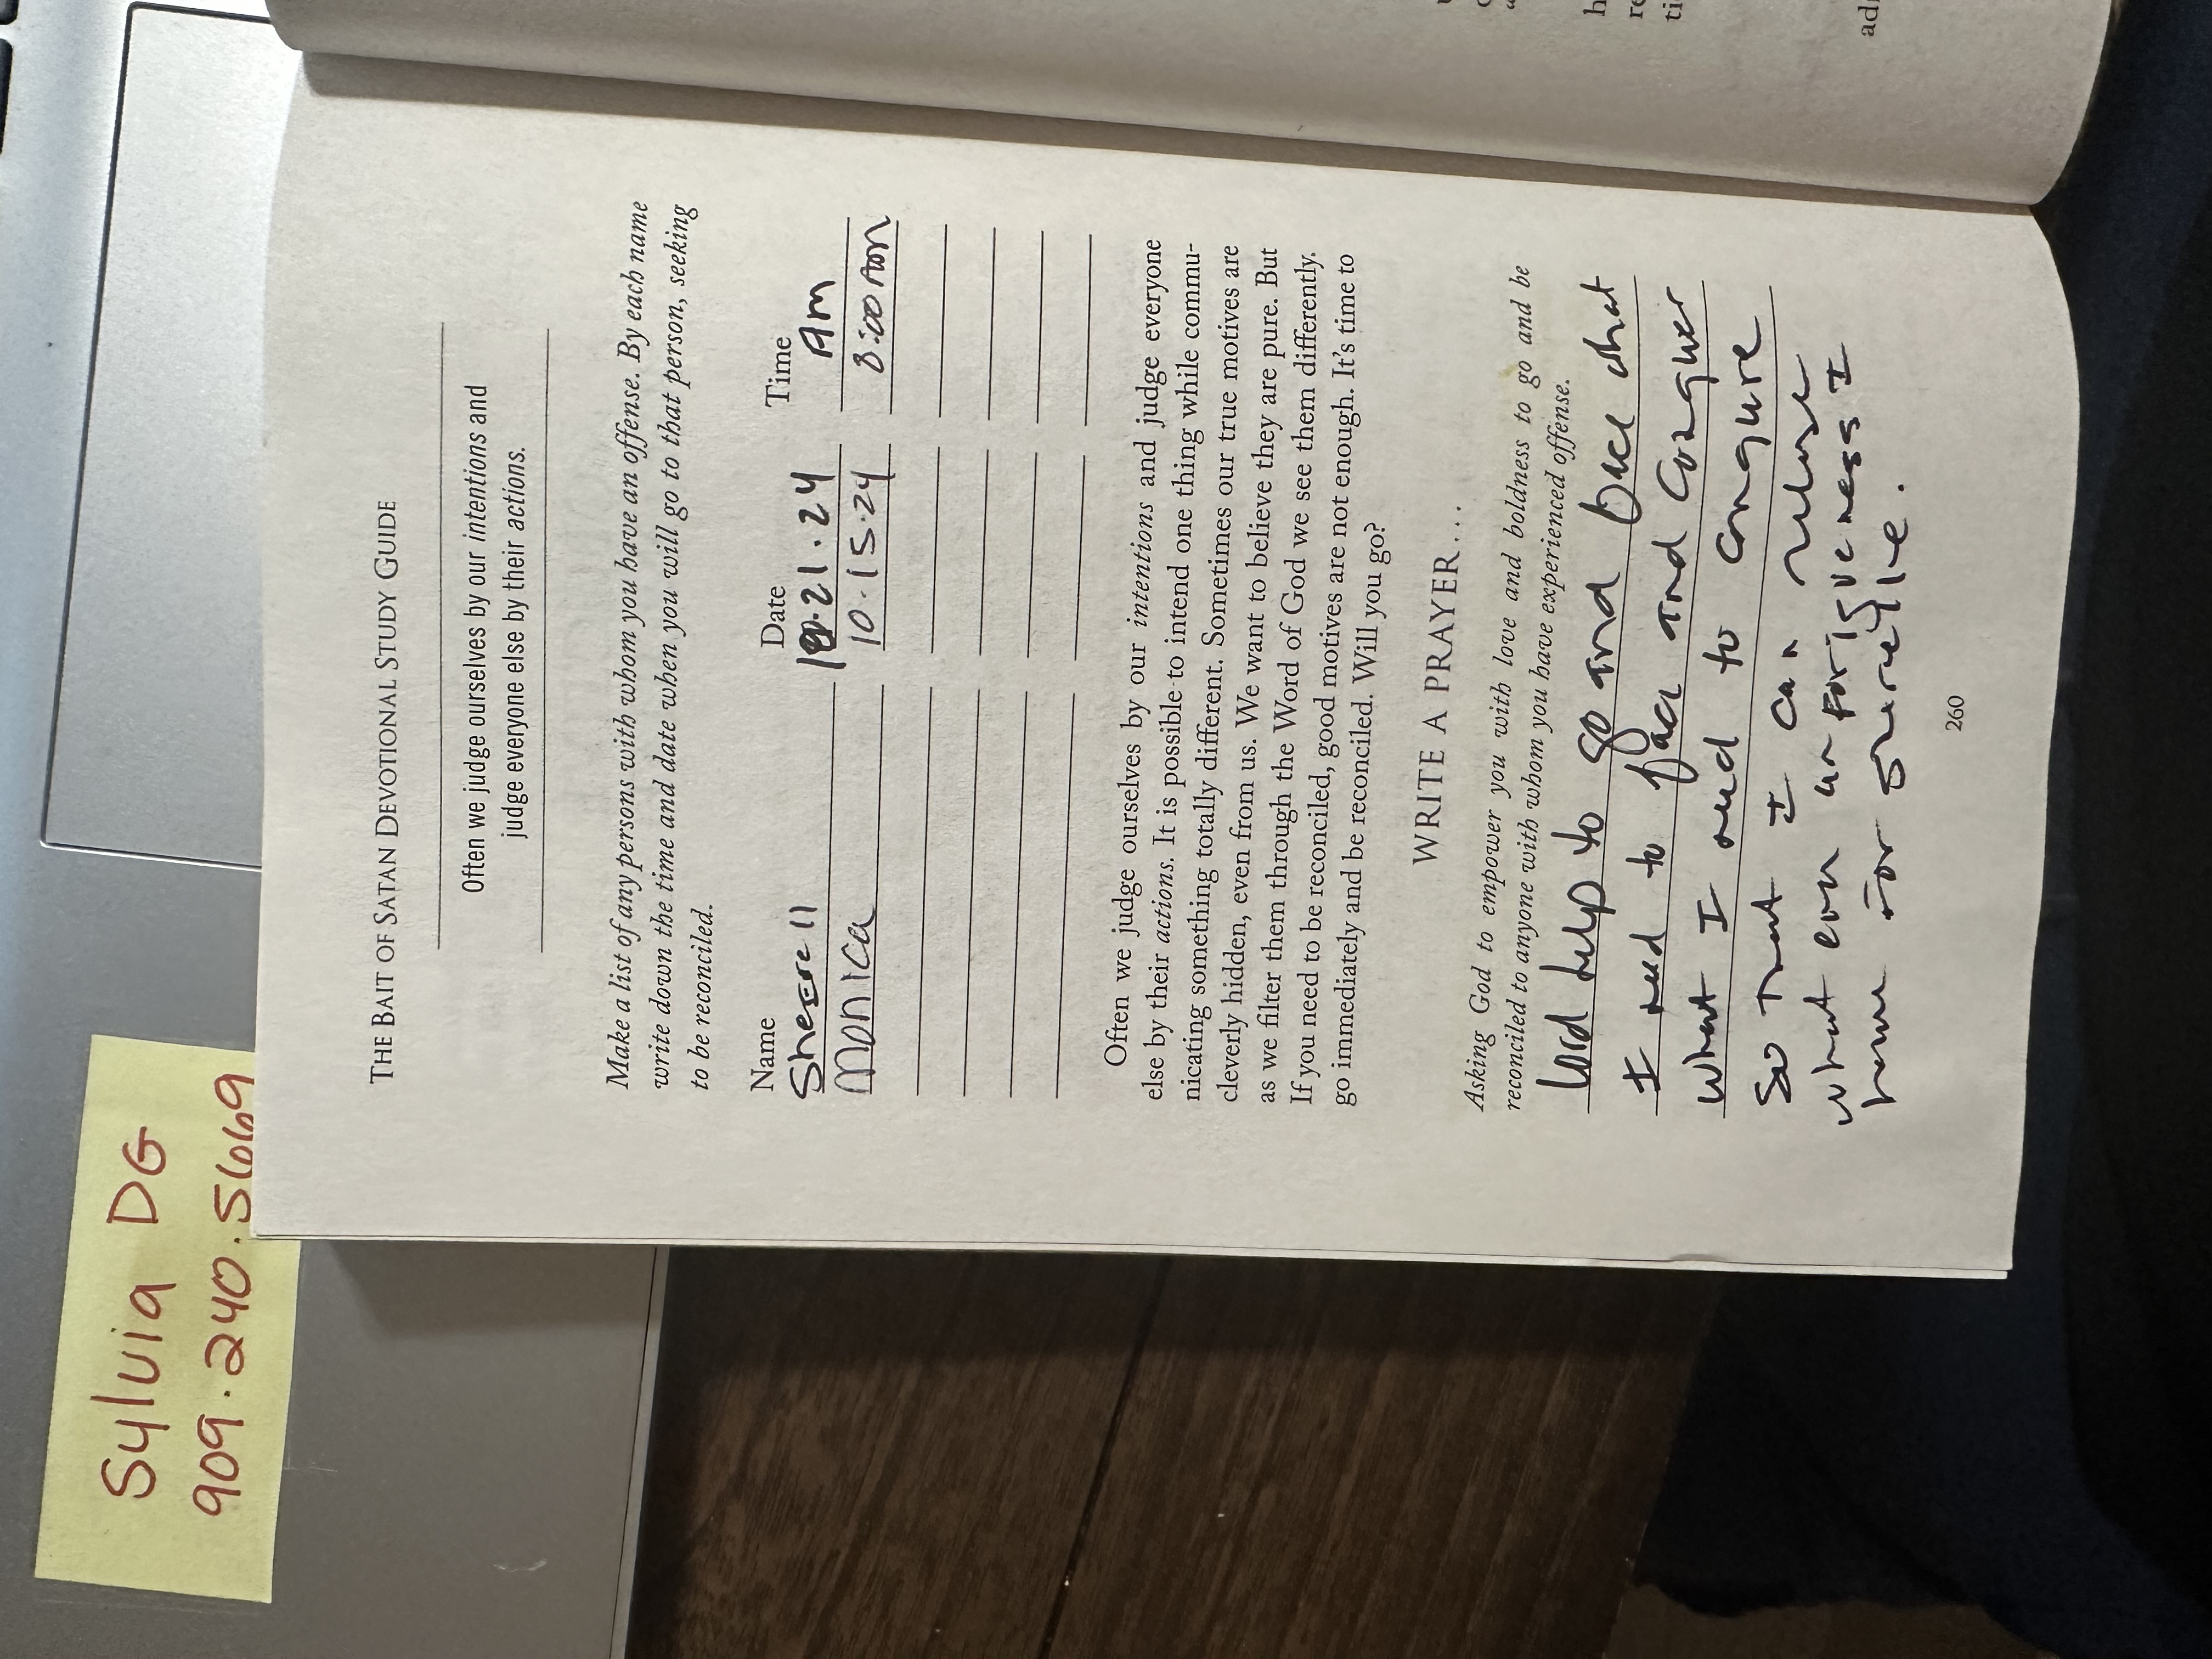 Sylvia DG
909.240.5669
THE BAIT OF SATAN DEVOTIONAL STUDY GUIDE
Often we judge ourselves by our intentions and
judge everyone else by their actions.
Make a list of any persons with whom you have an offense. By each name
write down the time and date when you will go to that person, seeking
to be reconciled.
Name Date Time
Sheerell 10.21.24 Am
Monica 10.15.24 8:00 Am
Often we judge ourselves by our intentions and judge everyone
else by their actions. It is possible to intend one thing while commu-
nicating something totally different. Sometimes our true motives are
cleverly hidden, even from us. We want to believe they are pure. But
as we filter them through the Word of God we see them differently.
If you need to be reconciled, good motives are not enough. It's time to
go immediately and be reconciled. Will you go?
WRITE A PRAYER...
Asking God to empower you with love and boldness to go and be
reconciled to anyone with whom you have experienced offense.
Lord help to go and face what
I need to face and Conquer
what I need to conqure
so that I can release
what ever unforigiveness I
have
260